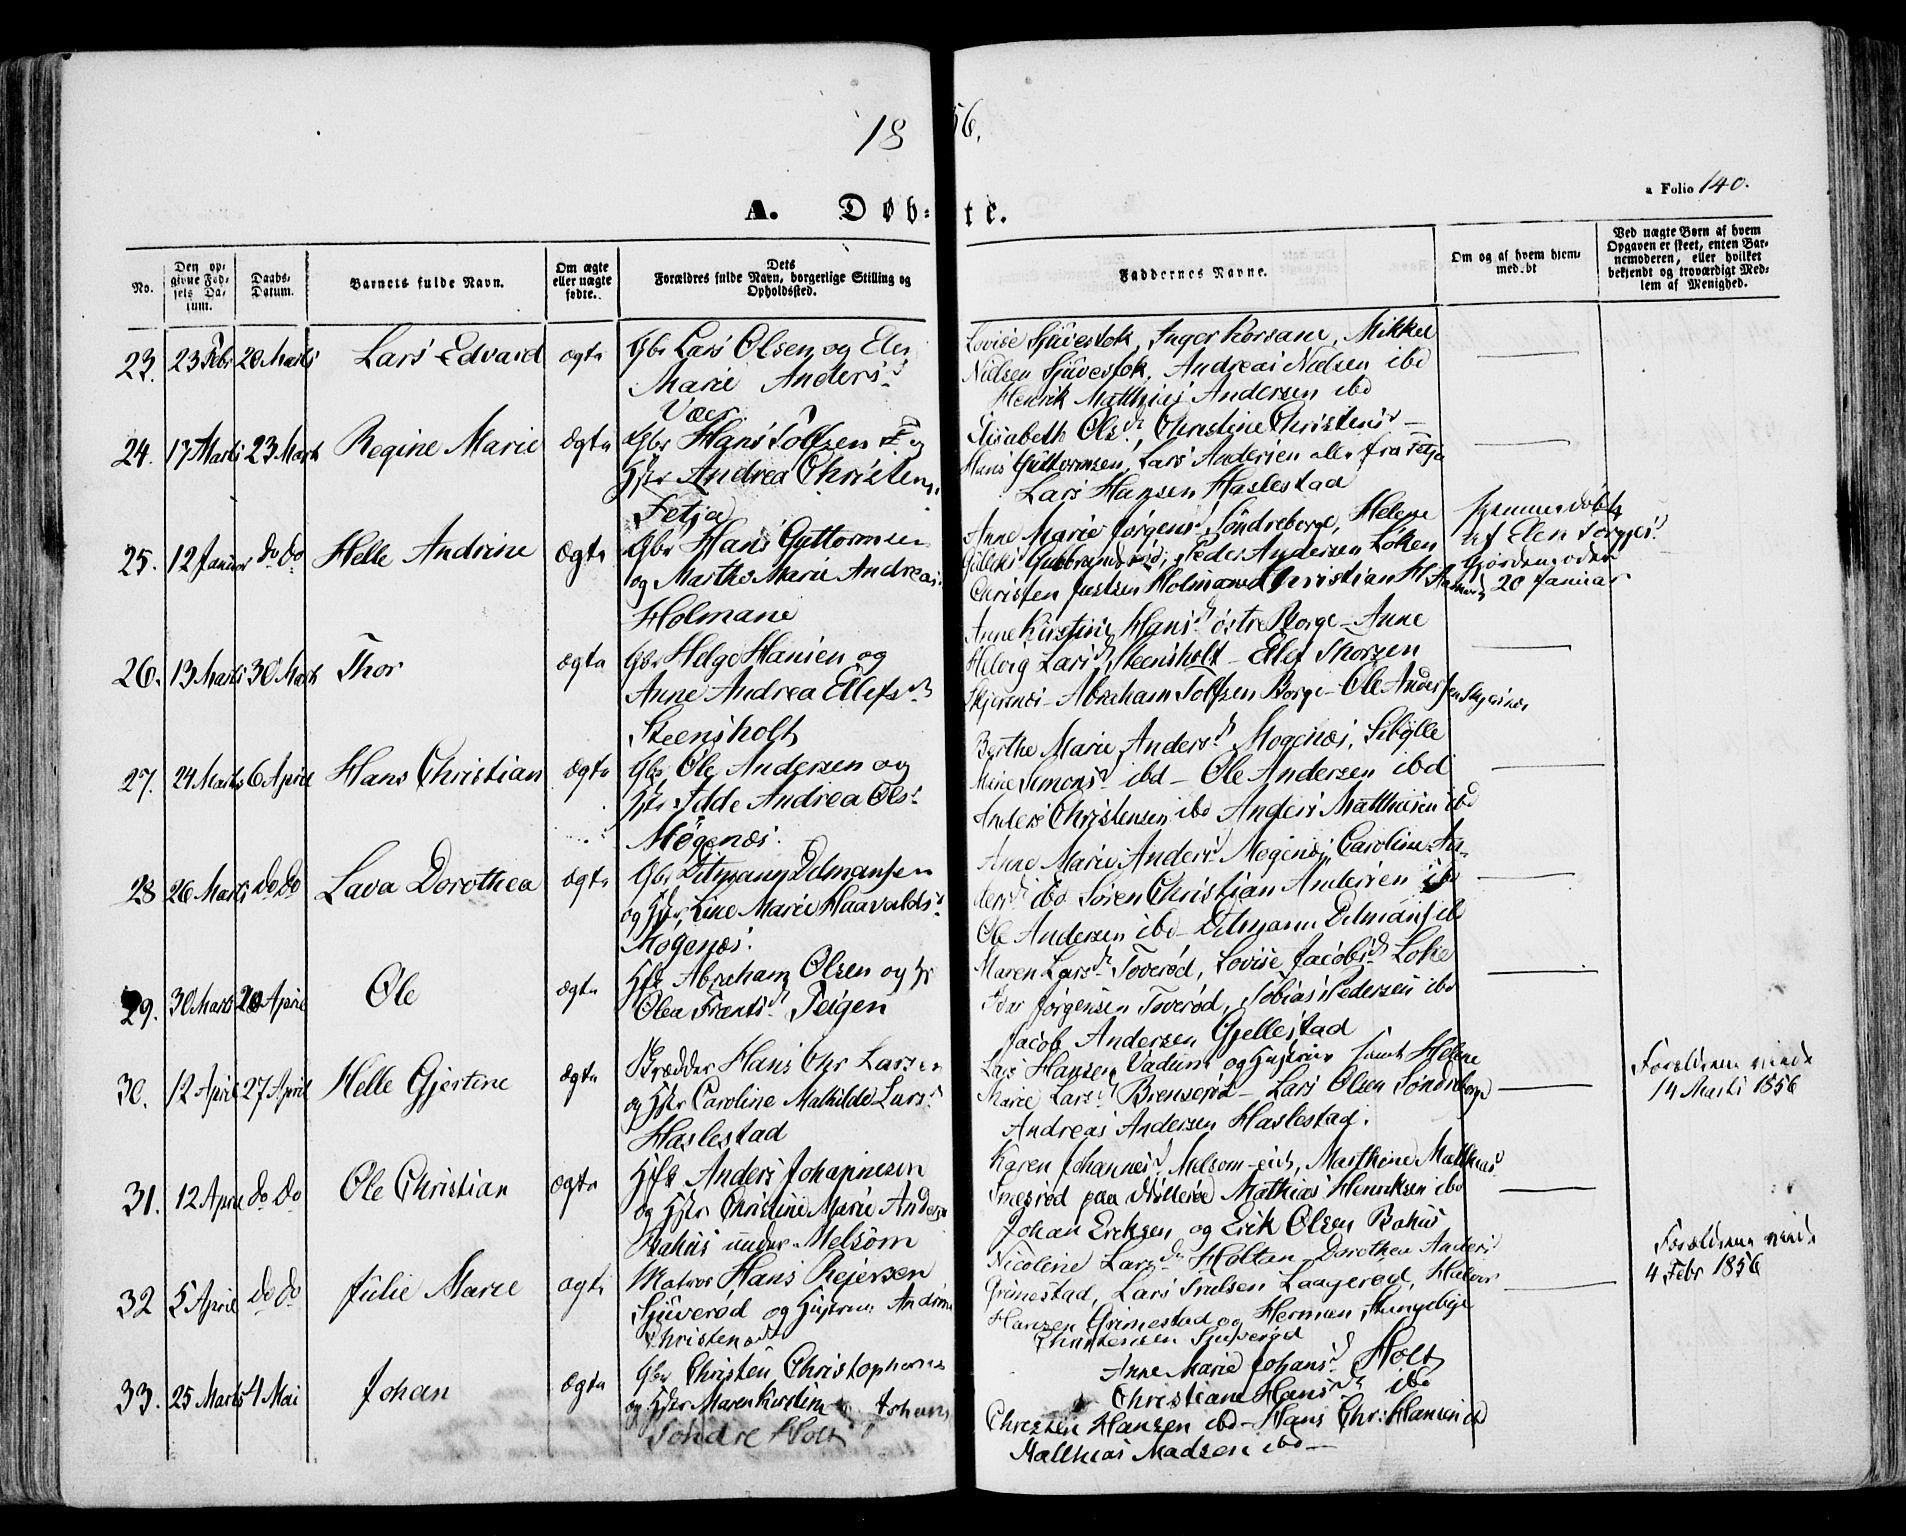 18 56.
a Folio 140.
A. Døb- te.
No.
Den opgivne Fødsels Datum.
Daabs-Datum.
Barnets fulde Navn.
Om ægte eller uægte fødte.
Dets Forældres fulde Navn, borgerlige Stilling og Opholdssted.
Faddernes Navne.
Om og af hvem hjemmedøbt
Ved uægte Børn af hvem Opgaven er skeet, enten Barnemoderen, eller hvilket bekjendt og troværdigt Medlem af Menighed.
23. 23 Febr 20 Marts Lars Edvard ægte Gbr Lars Olsen og Elen
Marie Andersd
Vær
Lovise Sjuvestok, Inger Korsane, Mikkel
Nielsen Sjuvestok, Andreas Nielsen ibd
Henrik Matthias Andersen ibd
24. 17 Marts 23 Marts Regine Marie ægte Gbr Hans Tolfsen F og
Hstr Andrea Christens
Fetja
Elisabeth Olsd, Christine Christensd
Hans Guttormsen, Lars Andersen alle fra Fetja
Lars Hansen Haslestad
25. 12 Januar do do Helle Andrine ægte Gbr Hans Guttormsen
og Marthe Marie Andreas
Holmane
Anne Marie Jørgensd Søndreborge, Helene
Gulliks Gudbrandsrød, Peder Andersen Løken
Christen Justsen Holmane Christian H
hjemmedøbt
af Elen Torgers
Gjordemoder
20 Januar
26. 13 Marts 30 Marts Thor ægte Gbr Helge Hansen og
Anne Andrea Ellefsd
Steensholt
Anne Kirstine Hansd østre Borge - Anne
Helvig Larsd Steensholt - Ellef Thorsen
Skjersnæs - Abraham Tolfsen Borge - Ole Andersen Skjersnæs
27. 24 Marts 6 April Hans Christian ægte Gbr Ole Andersen og
Hstr Idde Andrea Ols
Møgenæs.
Berthe Marie Andersd Mogenæs, Sibylle
Marie Simonsd ibd - Ole Andersen ibd
Anders Christensen ibd Anders Matthisen ibd
28 26 Marts do do Lava Dorothea ægte Gbr Ditmann Ditmansen
og Hstr Line Marie Haavalds
Mogenæs.
Anne Marie Andersd Mogenæs Caroline An-
dersd ibd Søren Christian Andersen ibd
Ole Andersen ibd - Ditmann Ditmans ibd
29. 30 Marts 20 April Ole ægte Hfst Abraham Olsen og Hs
Olea Frantsd Teigen
Maren Larsd Toverød, Lovise Jacobsd Loke
Ivar Jørgensen Toverød, Tobias Pedersen ibd
Jacob Andersen Gjellestad
30. 12 April 27 April Helle Gjertine ægte Skrædder Hans Chr Larsen
og Hstr Caroline Mathilde Lars
Haslestad
Lars Hansen Vadum og Hustrue samt Helene
Marie Larsd Brenserød - Lars Olsen Søndreborge
Andreas Andersen Haslestad.
Forældrene viede
14 Marts 1856
31. 12 April do do Ole Christian ægte Hfst Anders Johannesen
og Hstr Christine Marie Anders
Bakus under Melsom
Karen Johannesd Melsom-eie, Marthine Matthias
Snesrød paa Møllerøe Mathias Henriksen ibd
Johan Eriksen og Erik Olsen Bakus
32 5 April do do Julie Marie ægte Matros Hans Rejersen
Sjuverød og Hustrue Andrine
Christensd
Nicoline Larsd Holtan Dorothea Anders
Grimestad, Lars Truelsen Laagerød, Halvor
Hansen Grimestad og Herman Stangebye
Christensen Sjuverød
Forældrene viede
4 Febr 1856
33. 25 Marts 4 Mai Johan ægte Gbr Christen Christophersen
og Hstr Maren Kirstine Johans
Søndre Holt
Anne Marie Johansd Holt
Christiane Hansd ibd
Christen Hansen ibd - Hans Chr: Hansen ibd
Matthias Madsen ibd -